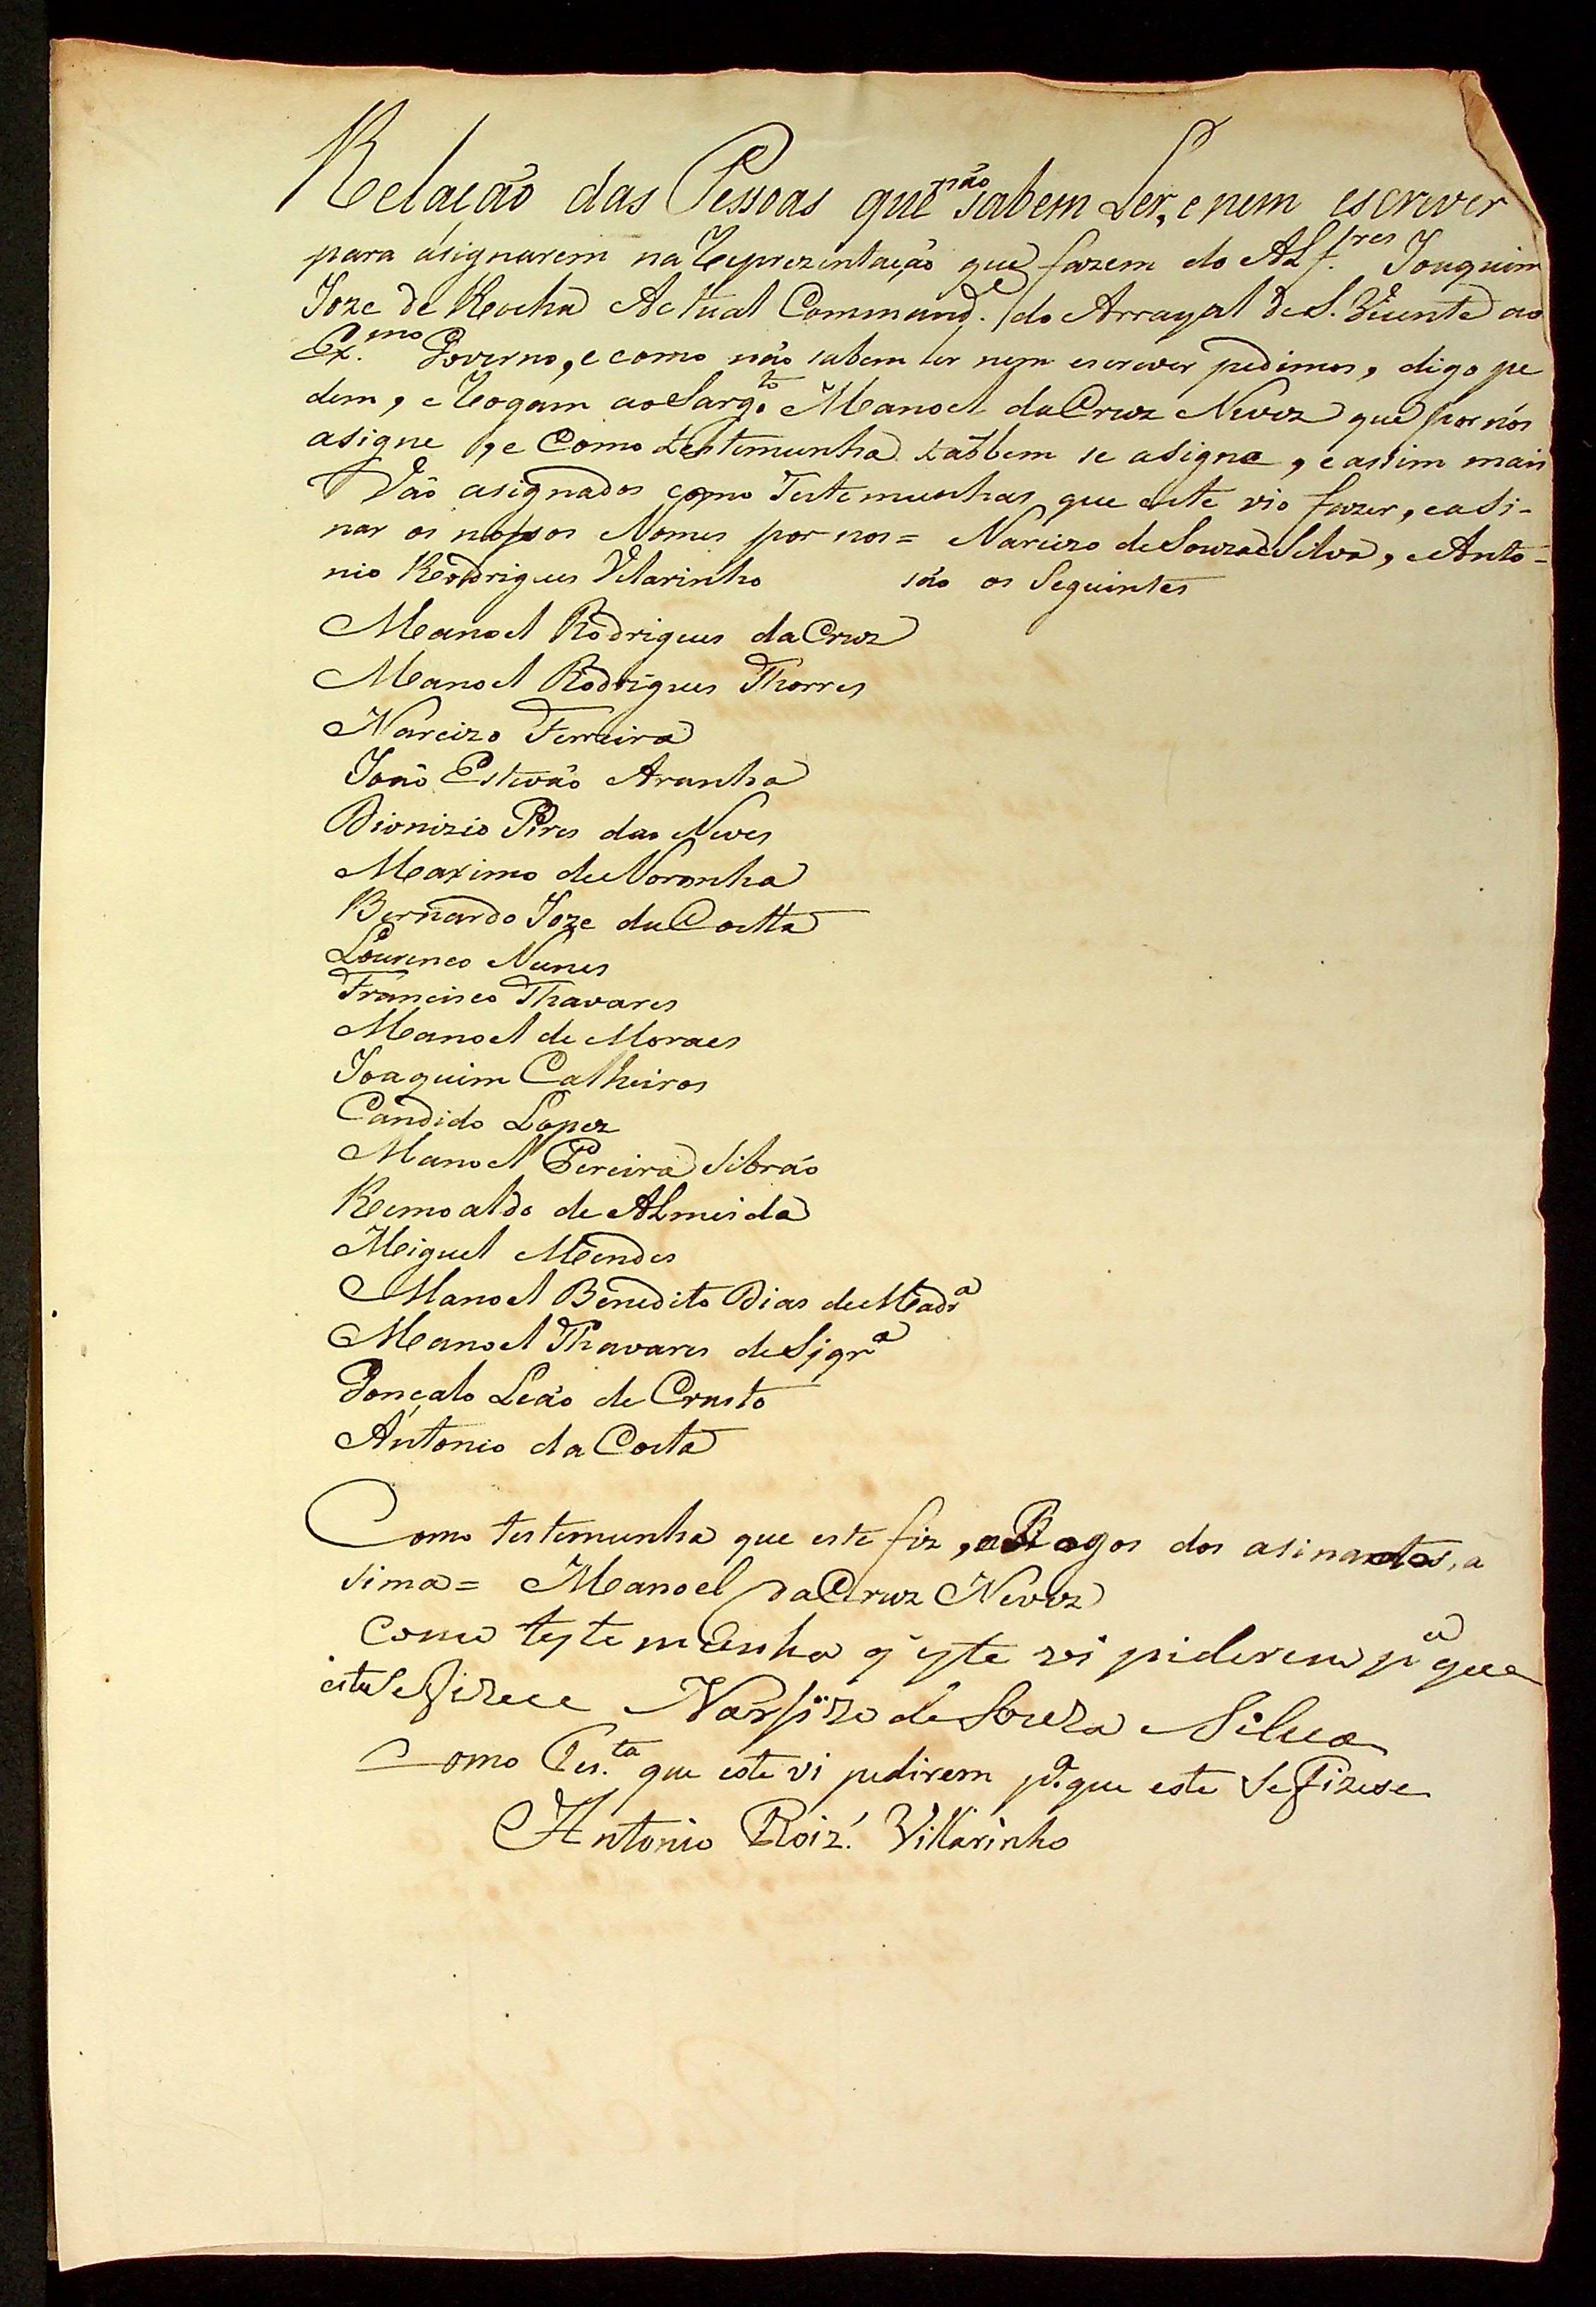 Relação das Pessoas que não sabem Ler, e nem escrever
para asignarem na Reprezentação que fazem do ALf.res Joaquim
Joze de Rocha Actual Command.e do Arrayal de S. Vicente ao
Ex.mo Governo, e como não sabem ler nem escrever pedimos, digo pe
dem, e Rogam ao Sarg.to Manoel da Cruz Nevez que por nós
asigne, e Como testemunha tãobem se asigne, e assim mais
Vão asignados como Testemunhas que este vio fazer, e asi-
nar os nossos Nomes por nos = Narcizo de Souza e Silva, e Anto-
nio Rodrigues Vilarinho são os Seguintes
Manoel Rodrigues da Cruz
Manoel Rodrigues Thorres
Narcizo Ferreira
João Estevão Aranha
Dionizio Pires das Neves
Maximo de Noronha
Bernardo Joze da Costta
Lourenco Nunes
Francisco Thavares
Manoel de Moraes
Joaquim Calheiros
Candido Lopez
Manoel Pereira Sibrão
Remoaldo de ALmeida
Miguel Mendes
Manoel Benedito Dias de Mad.ra
Manoel Thavares de Siqr.a
Gonçalo Leão de Crasto
Antonio da Costa
Como testemunha que este fiz, a Rogos dos asinantes, a
sima = Manoel da Cruz Nevez
como tystemunha q̃ yste vi piderem p.a que
este se fizece Narsizo de Souza e Silva
Como Tes.ta que este vi pedirem p.a que este Se fizese
Antonio Roiz.' Villarinho